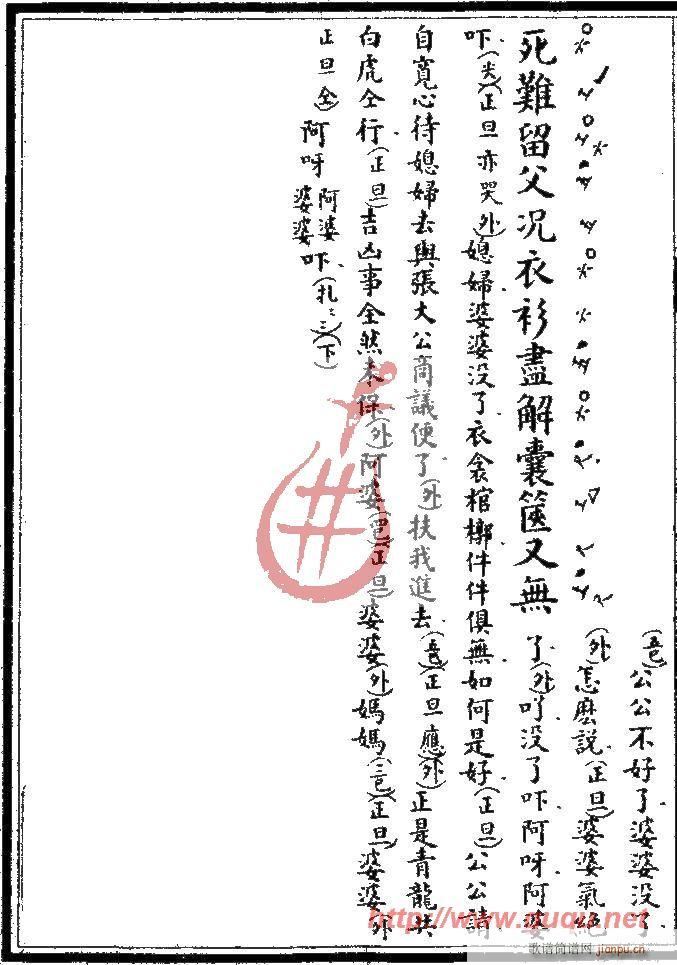 死難留父况衣衫盡解囊篋又無
公公不好了婆婆没了
(外)怎麽説(正旦)婆婆氣絶
了(外)吖没了吓阿呀阿婆
吓(哭)(正旦亦哭)(外)媳婦婆婆没了衣衾棺槨件件俱無如何是好(正旦)公公請
自寬心待媳婦去與張大公商議便了(外)扶我進去(正旦應)(外)正是青龍共
白虎仝行(正旦)吉凶事全然未保(外)阿婆(正旦)婆婆(外)媽媽(正旦)婆婆(外
正旦仝)阿呀阿婆婆婆吓(下)
http://www.ququ.net
歌谱简谱网 jianpu.cn